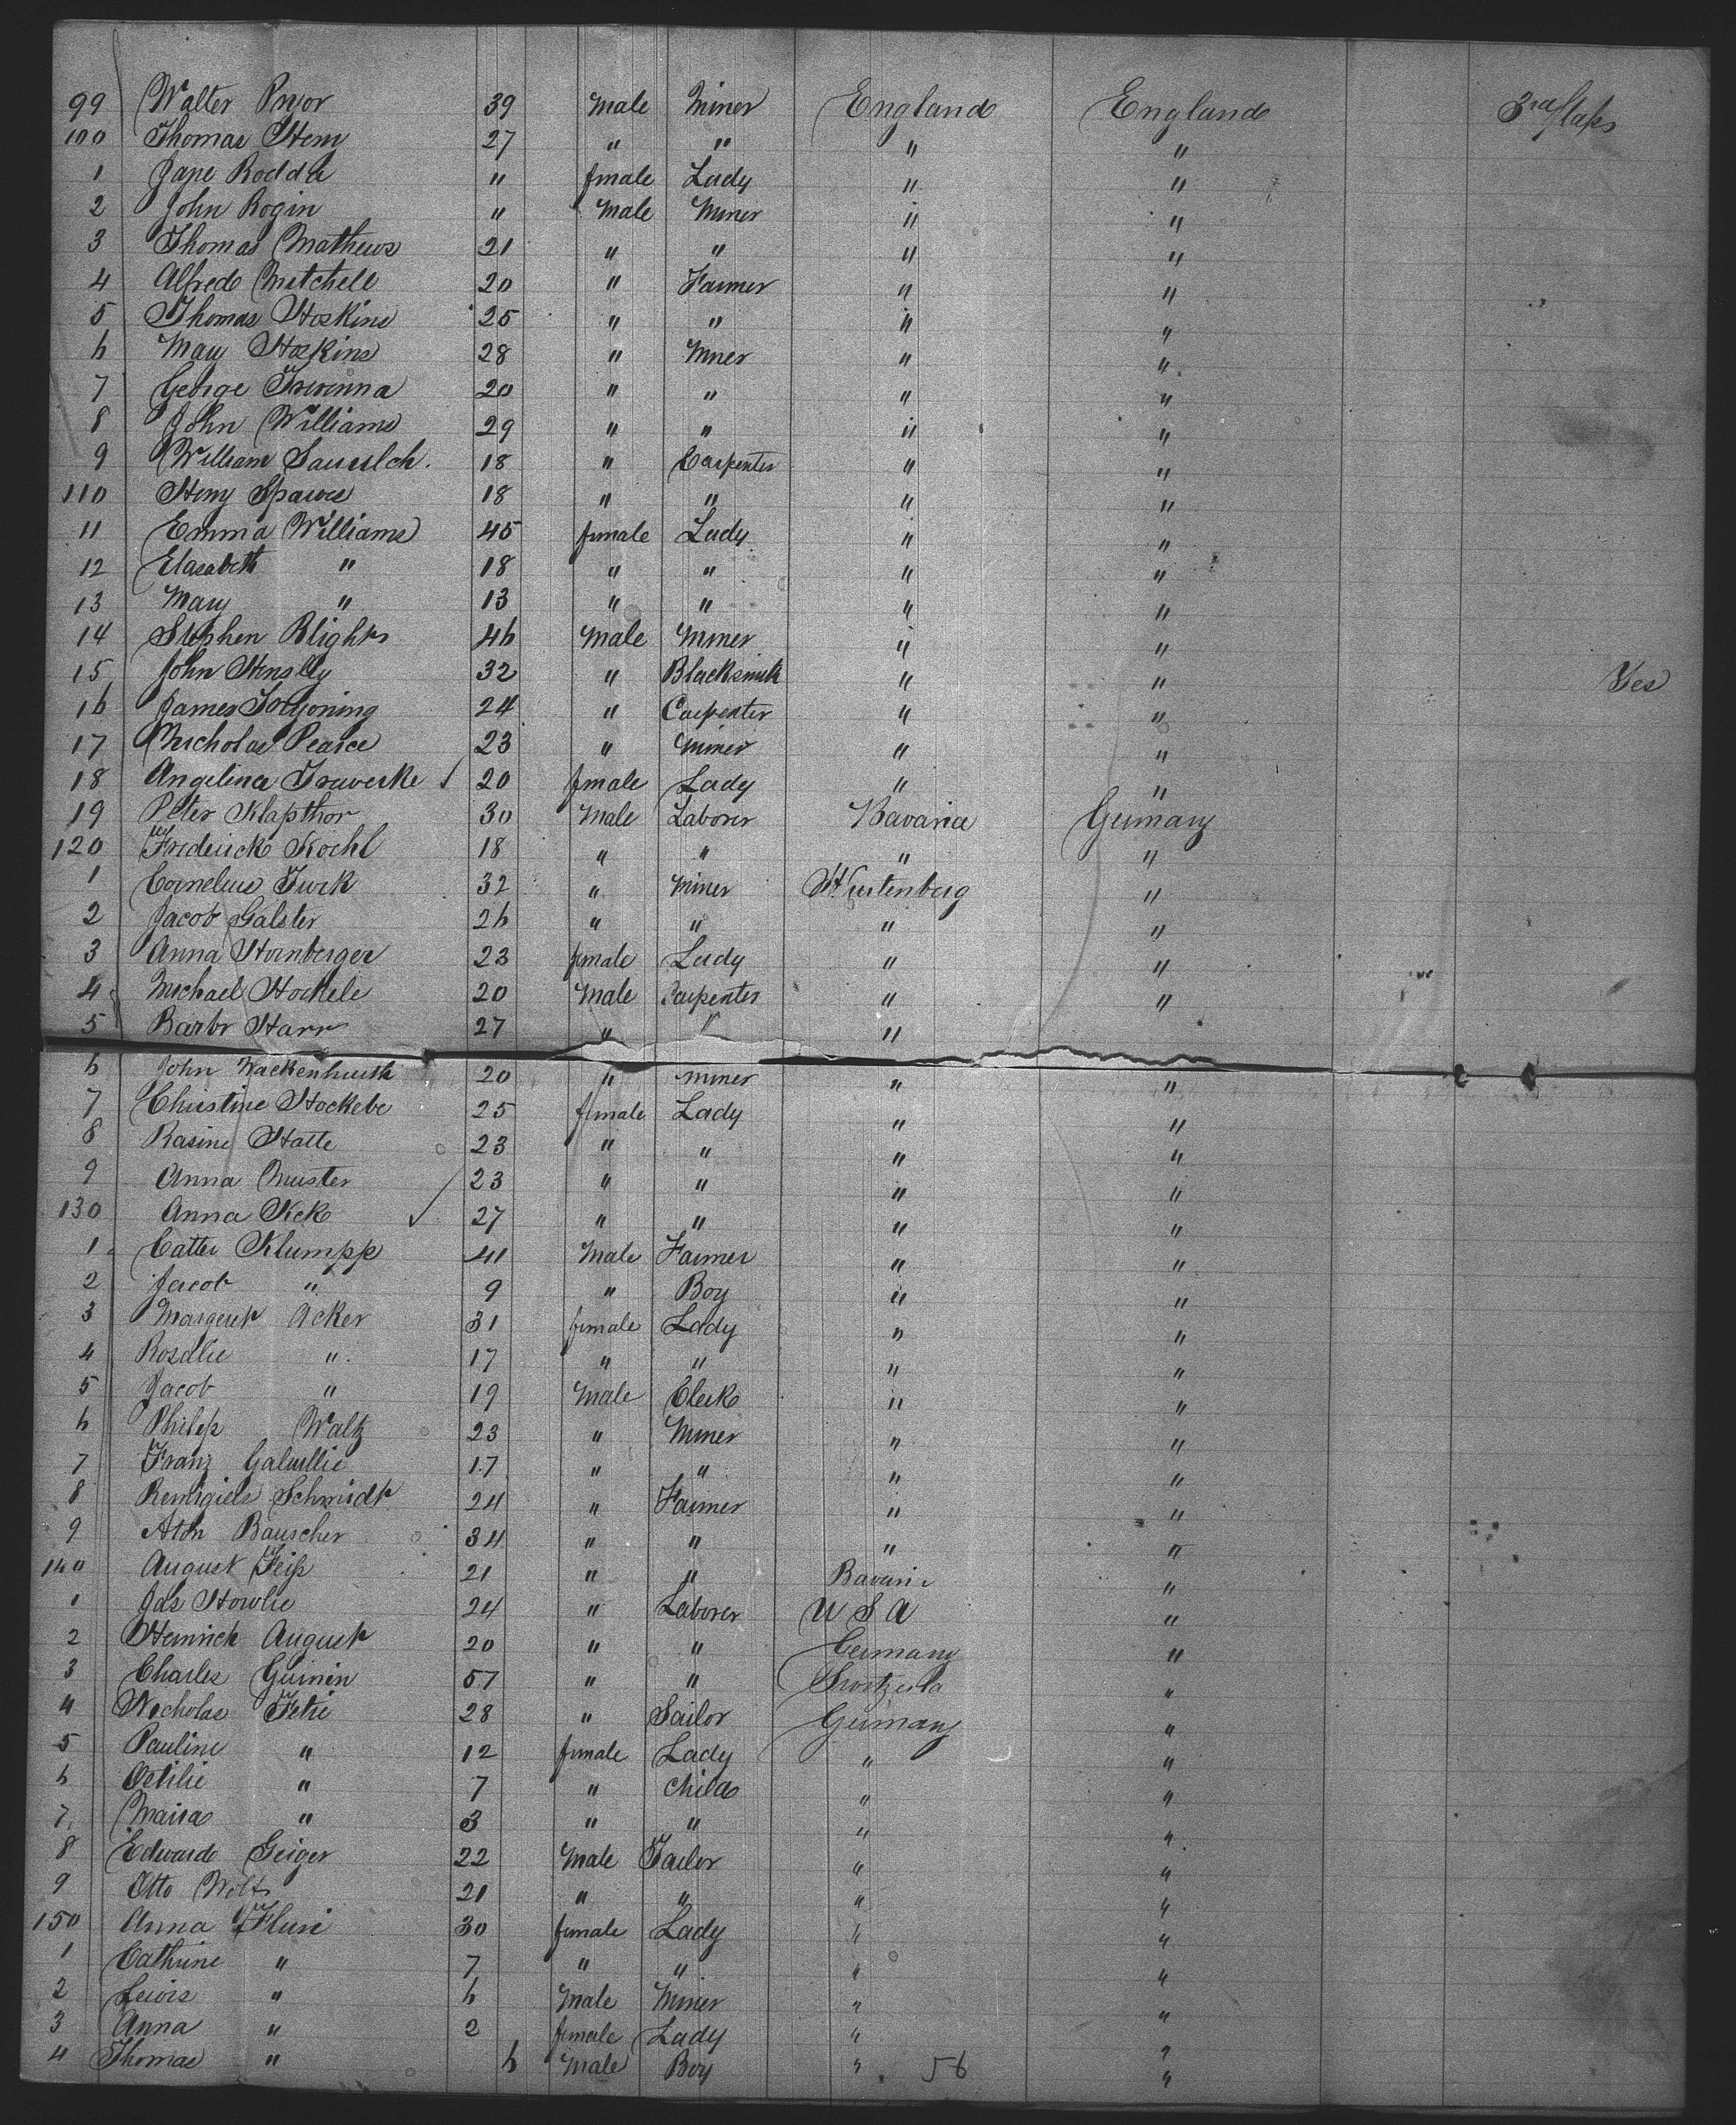 99 Walter Pryor 39 Male Miner England England 3rd Class
100 Thomas Henry 27 " " " "
1 Jane Rodda " female Lady " "
2 John Rogin " Male Miner " "
3 Thomas Mathews 21 " " " "
4 Alfred Mitchell 20 " Farmer " "
5 Thomas Hoskins 25 " " " "
6 May Hoskins 28 " Miner " "
7 George Trevenna 20 " " " "
8 John Williams 29 " " " "
9 William 18 " Carpenter " "
110 Henry 18 " " " "
11 Emma Williams 45 female Lady " "
12 Elasabeth " 18 " " " "
13 Mary " 13 " " " "
14 Stephen Blight 46 Male Miner " "
15 John 32 " Blacksmith " " Yes
16 James 24 " Carpenter " "
17 Nicholas Pearce 23 " Miner " "
18 Angelina 20 female Lady " "
19 Peter Klapthor 30 Male Laborer Bavaria Germany
120 Frederick Koehl 18 " " " "
1 Cornelius Turk 32 " Miner Wurtenberg "
2 Jacob Galster 26 " " " "
3 Anna Hornberger 23 female Lady " "
4 Michael Hockele 20 Male Carpenter " "
5 Barbr Harr 27 " " "
6 John Wackenhuth 20 " Miner " "
7 Christine Hockele 25 female Lady " "
8 Rasine 23 " " " "
9 Anna Muster 23 " " " "
130 Anna Keck 27 " " " "
1 Catter Klumpp 41 Male Farmer " "
2 Jacob " 9 " Boy " "
3 Margeret Acker 31 female Lady " "
4 Rosalie " 17 " " " "
5 Jacob " 19 Male Clerk " "
6 Philip Waltz 23 " Miner " "
7 Franz 17 " " " "
8 Remigiels Schmidt 24 " Farmer " "
9 Aton Bauscher 34 " " " "
140 August Feiss 21 " " Bavaria "
1 Jas Howlie 24 " Laborer U S A "
2 Heinrich August 20 " " Germany "
3 Charles Guinin 57 " " "
4 Nicholas Fetri 28 " Sailor Germany "
5 Pauline " 12 female Lady " "
6 Ottilie " 7 " Child " "
7 Maria " 3 " " " "
8 Edward Geiger 22 Male Tailor " "
9 Otto Wolf 21 " " " "
150 Anna Fluri 30 female Lady " "
1 Cathrine " 7 " " " "
2 Lewis " 6 Male Miner " "
3 Anna " 2 female Lady " "
4 Thomas " 6 Male Boy " "
56